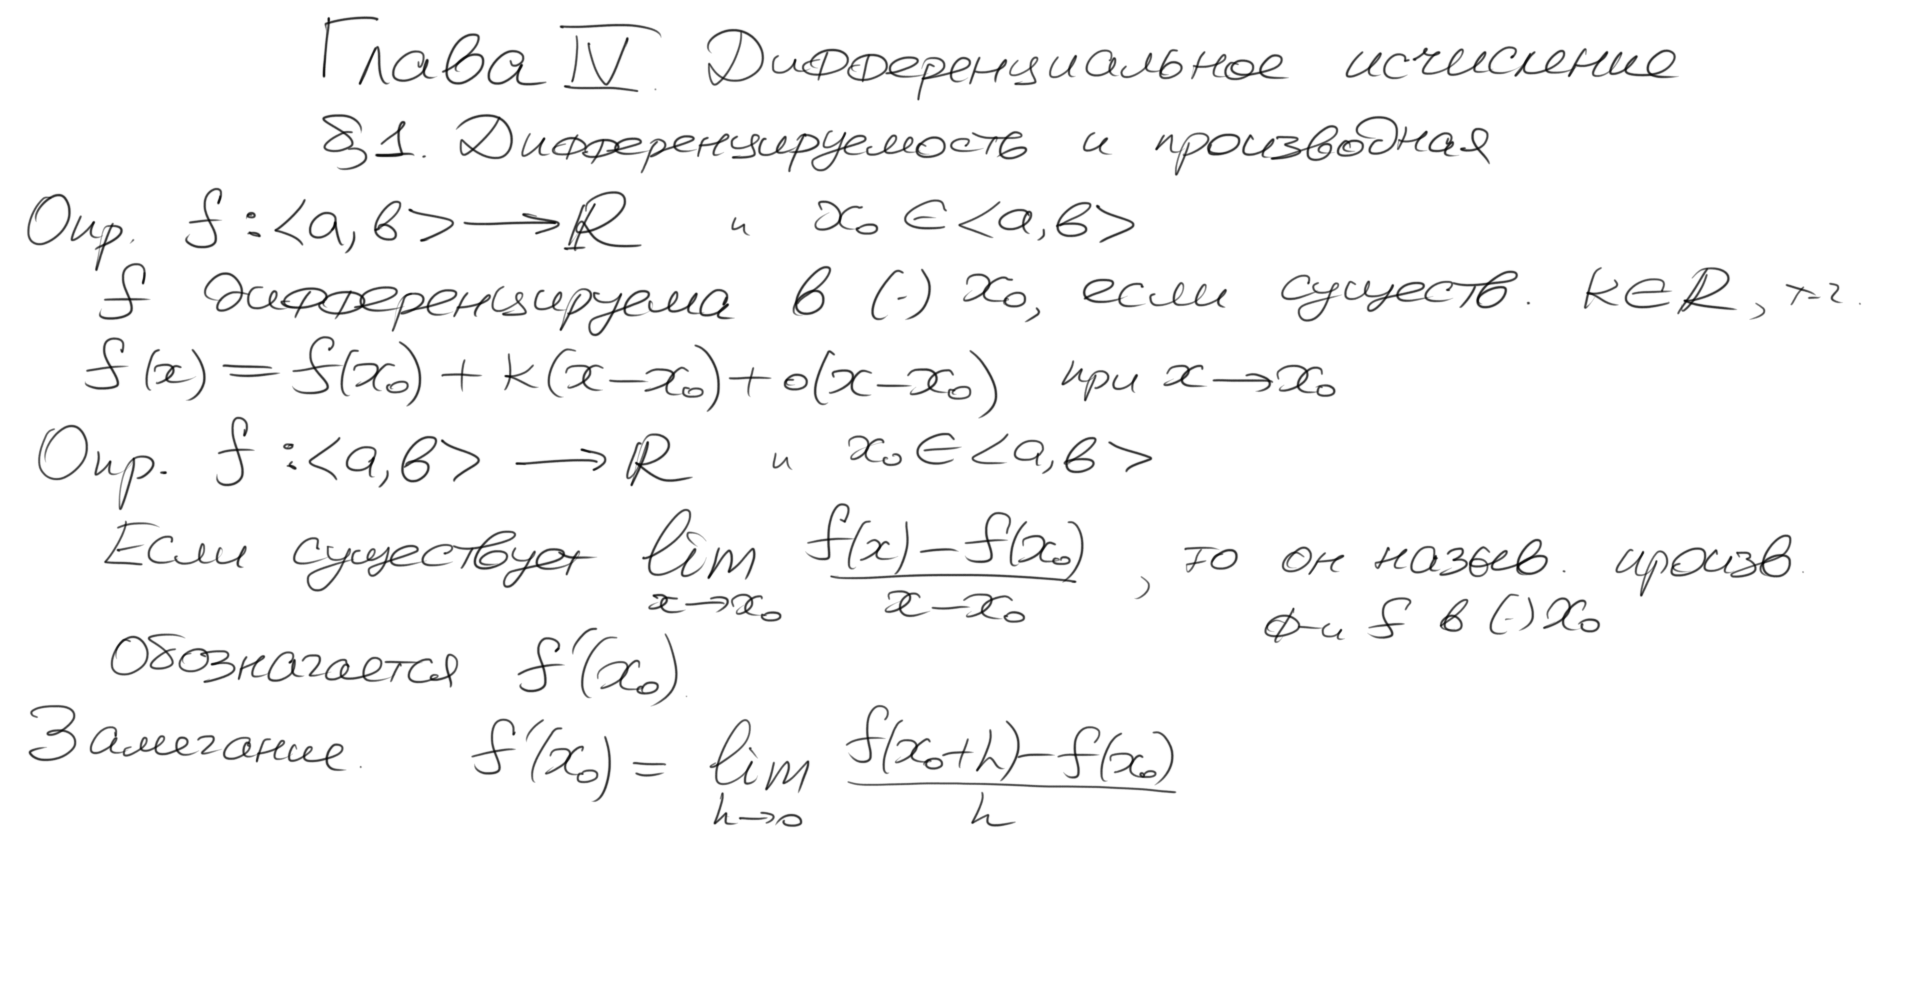 Глава IV. Дифференциальное исчисление
§1. Дифференцируемость и производная
Опр. f : <a, b> → ℝ и x₀ ∈ <a, b>
f дифференцируема в (·) x₀, если существ. k ∈ ℝ, т-ч.
f(x) = f(x₀) + k(x – x₀) + o(x – x₀) при x → x₀
Опр. f : <a, b> → ℝ и x₀ ∈ <a, b>
Если существует lim_{x→x₀} (f(x) – f(x₀))/(x – x₀), то он назыв. произв.
ф-и f в (·) x₀
Обозначается f′(x₀).
Замечание. f′(x₀) = lim_{h→0} (f(x₀+h) – f(x₀))/h